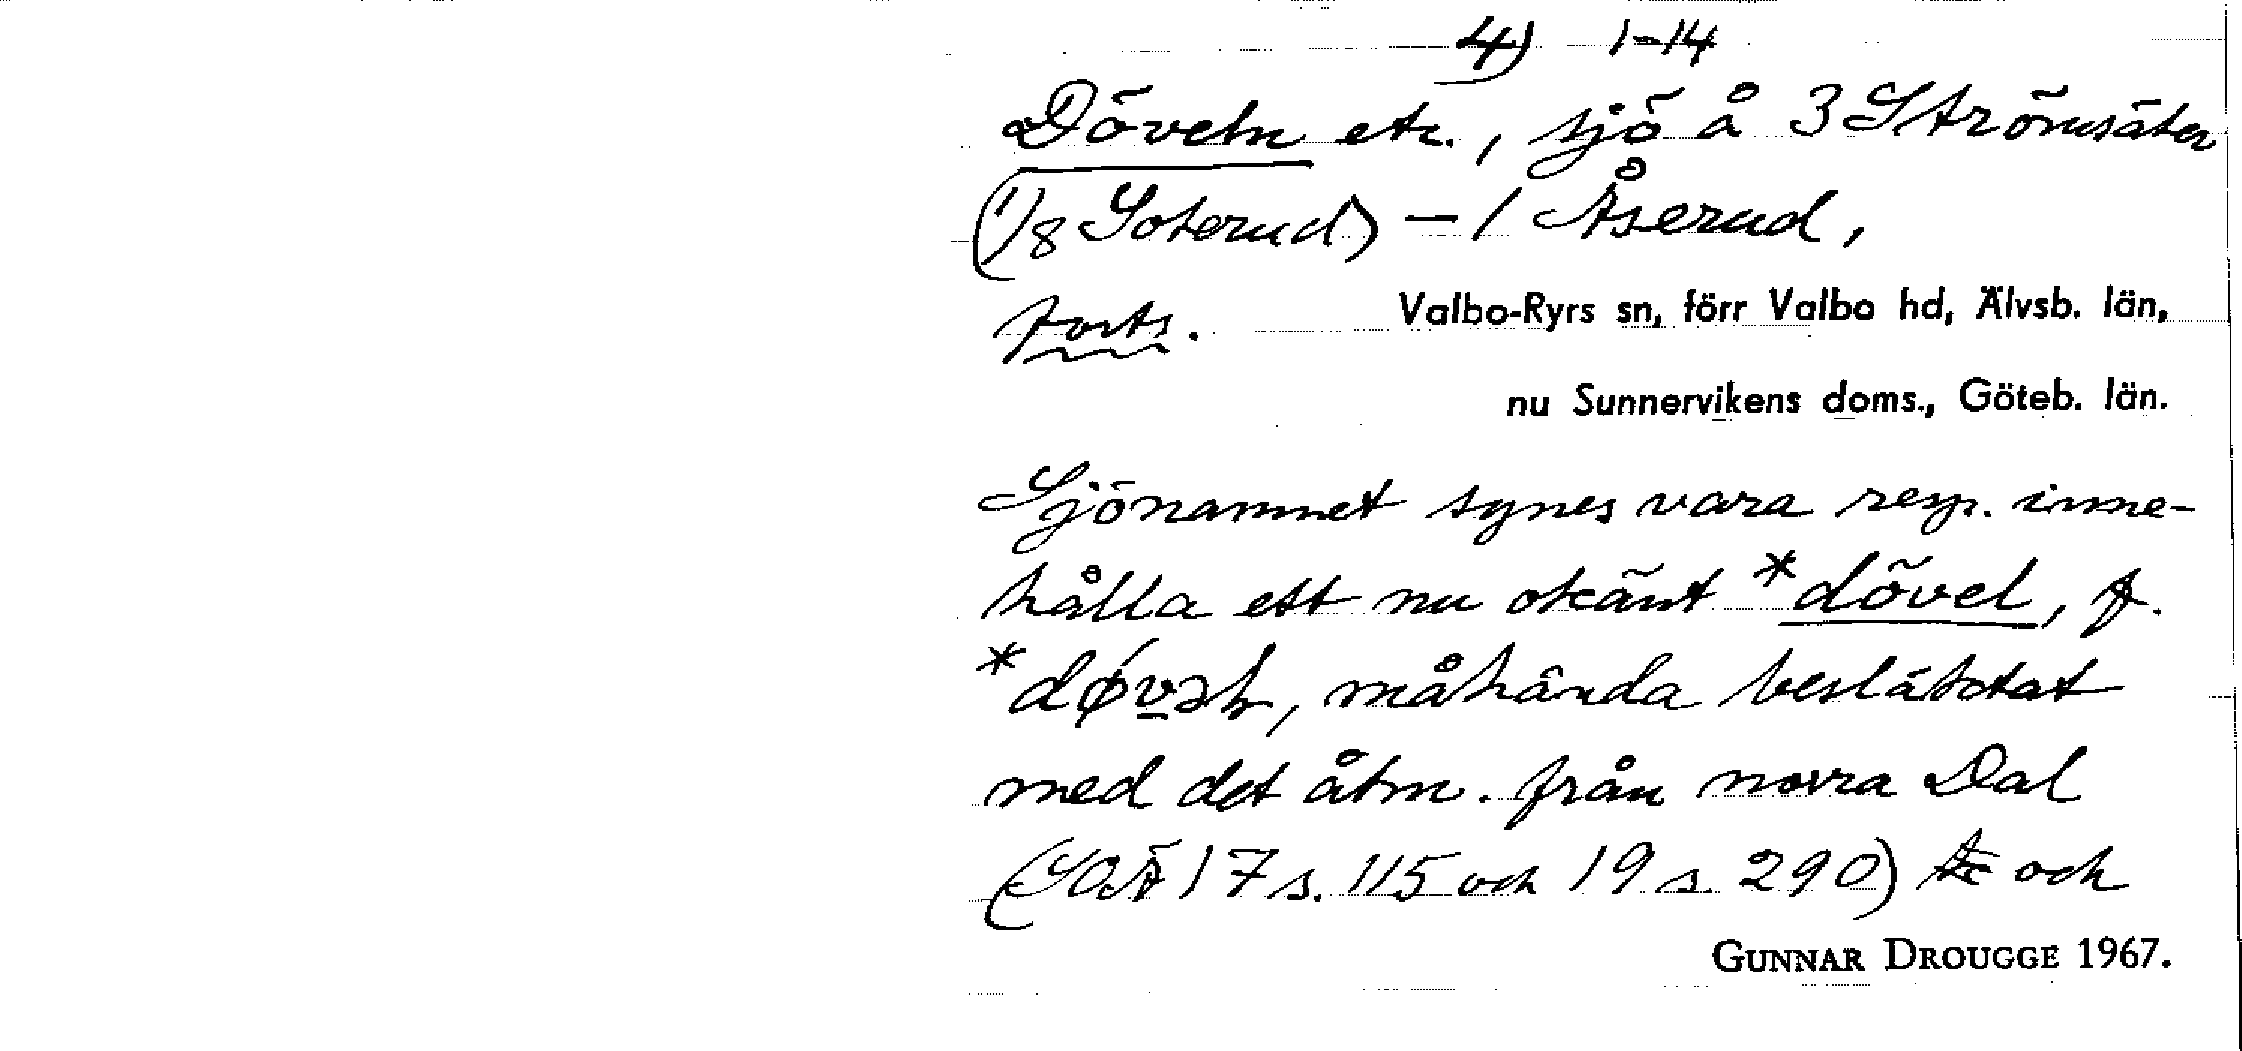 4) 1-14
Döveln etc., sjö å 3 Strömsäter
(1/8 Soterud) - 1 Åserud,
forts. Valbo-Ryrs sn, förr Valbo hd, Älvsb. län,
nu Sunnervikens doms., Göteb. län.
Sjönamnet synes vara resp. inne-
hålla ett nu okänt *dövel, f.
*døvəł, måhända besläktat
med det åtm. från norra Dal
(SOÄ 17 s. 115 och 19 s. 290) och
GUNNAR DROUGGE 1967.